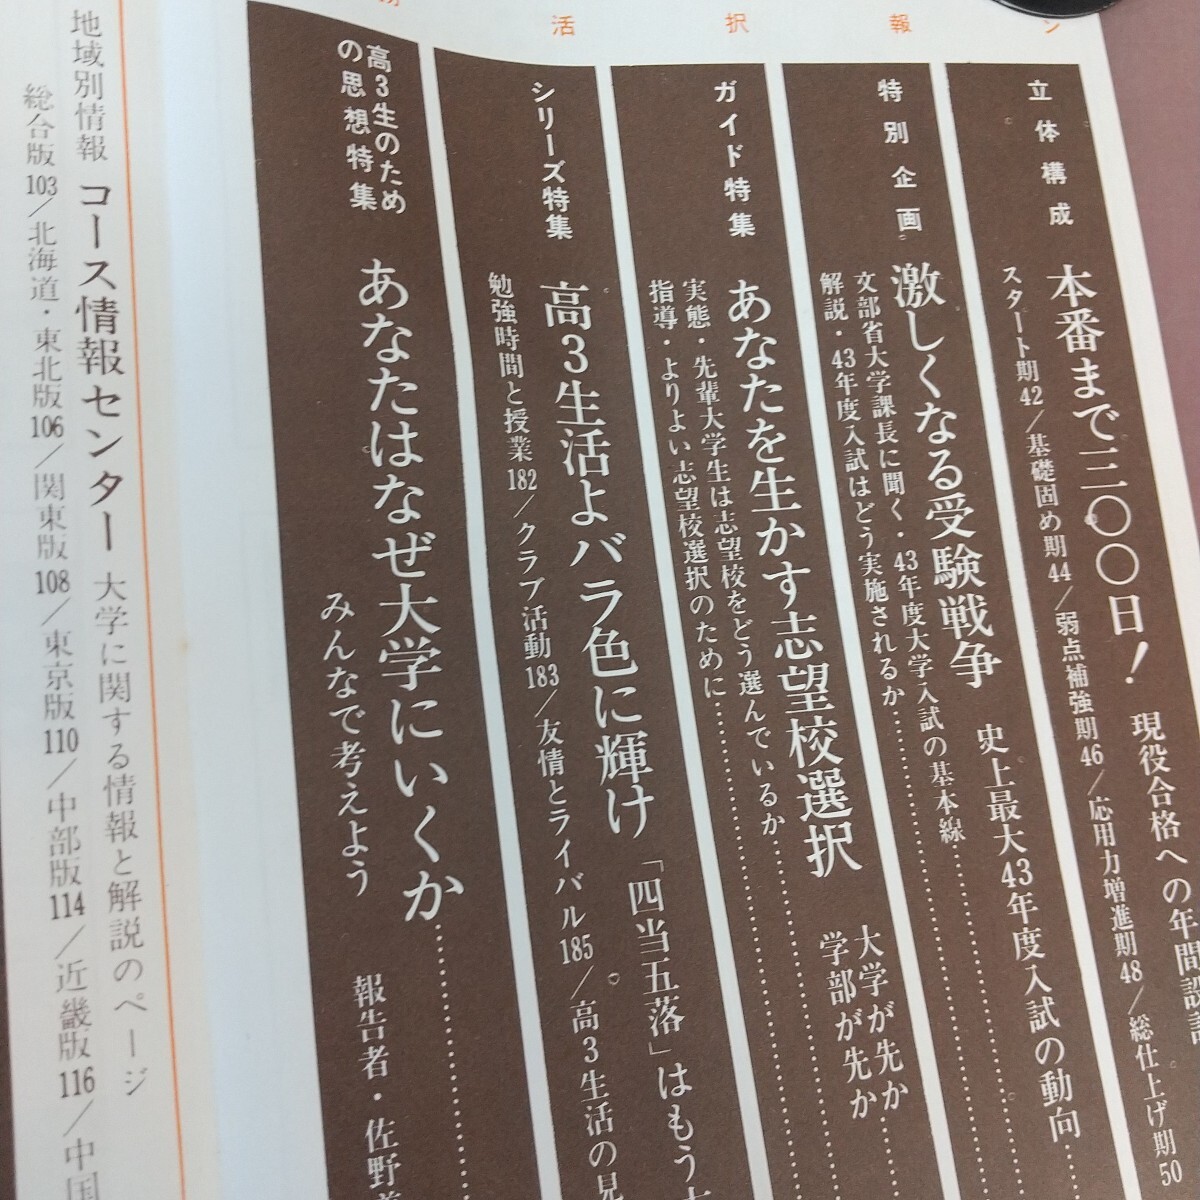 活択報
立体構成
本番まで三〇〇日！ 現役合格への年間設計
スタート期42／基礎固め期44／弱点補強期46／応用力増進期48／総仕上げ期50
特別企画
激しくなる受験戦争 史上最大43年度入試の動向
文部省大学課長に聞く・43年度大学入試の基本線
解説・43年度入試はどう実施されるか
ガイド特集
あなたを生かす志望校選択 大学が先か
学部が先か
実態・先輩大学生は志望校をどう選んでいるか
指導・よりよい志望校選択のために
シリーズ特集
高3生活よバラ色に輝け 「四当五落」はもう
勉強時間と授業182／クラブ活動183／友情とライバル185／高3生活の見
高3生のため
の思想特集
あなたはなぜ大学にいくか
みんなで考えよう 報告者・佐野
地域別情報 コース情報センター 大学に関する情報と解説のページ
総合版103／北海道・東北版106／関東版108／東京版110／中部版114／近畿版116／中国